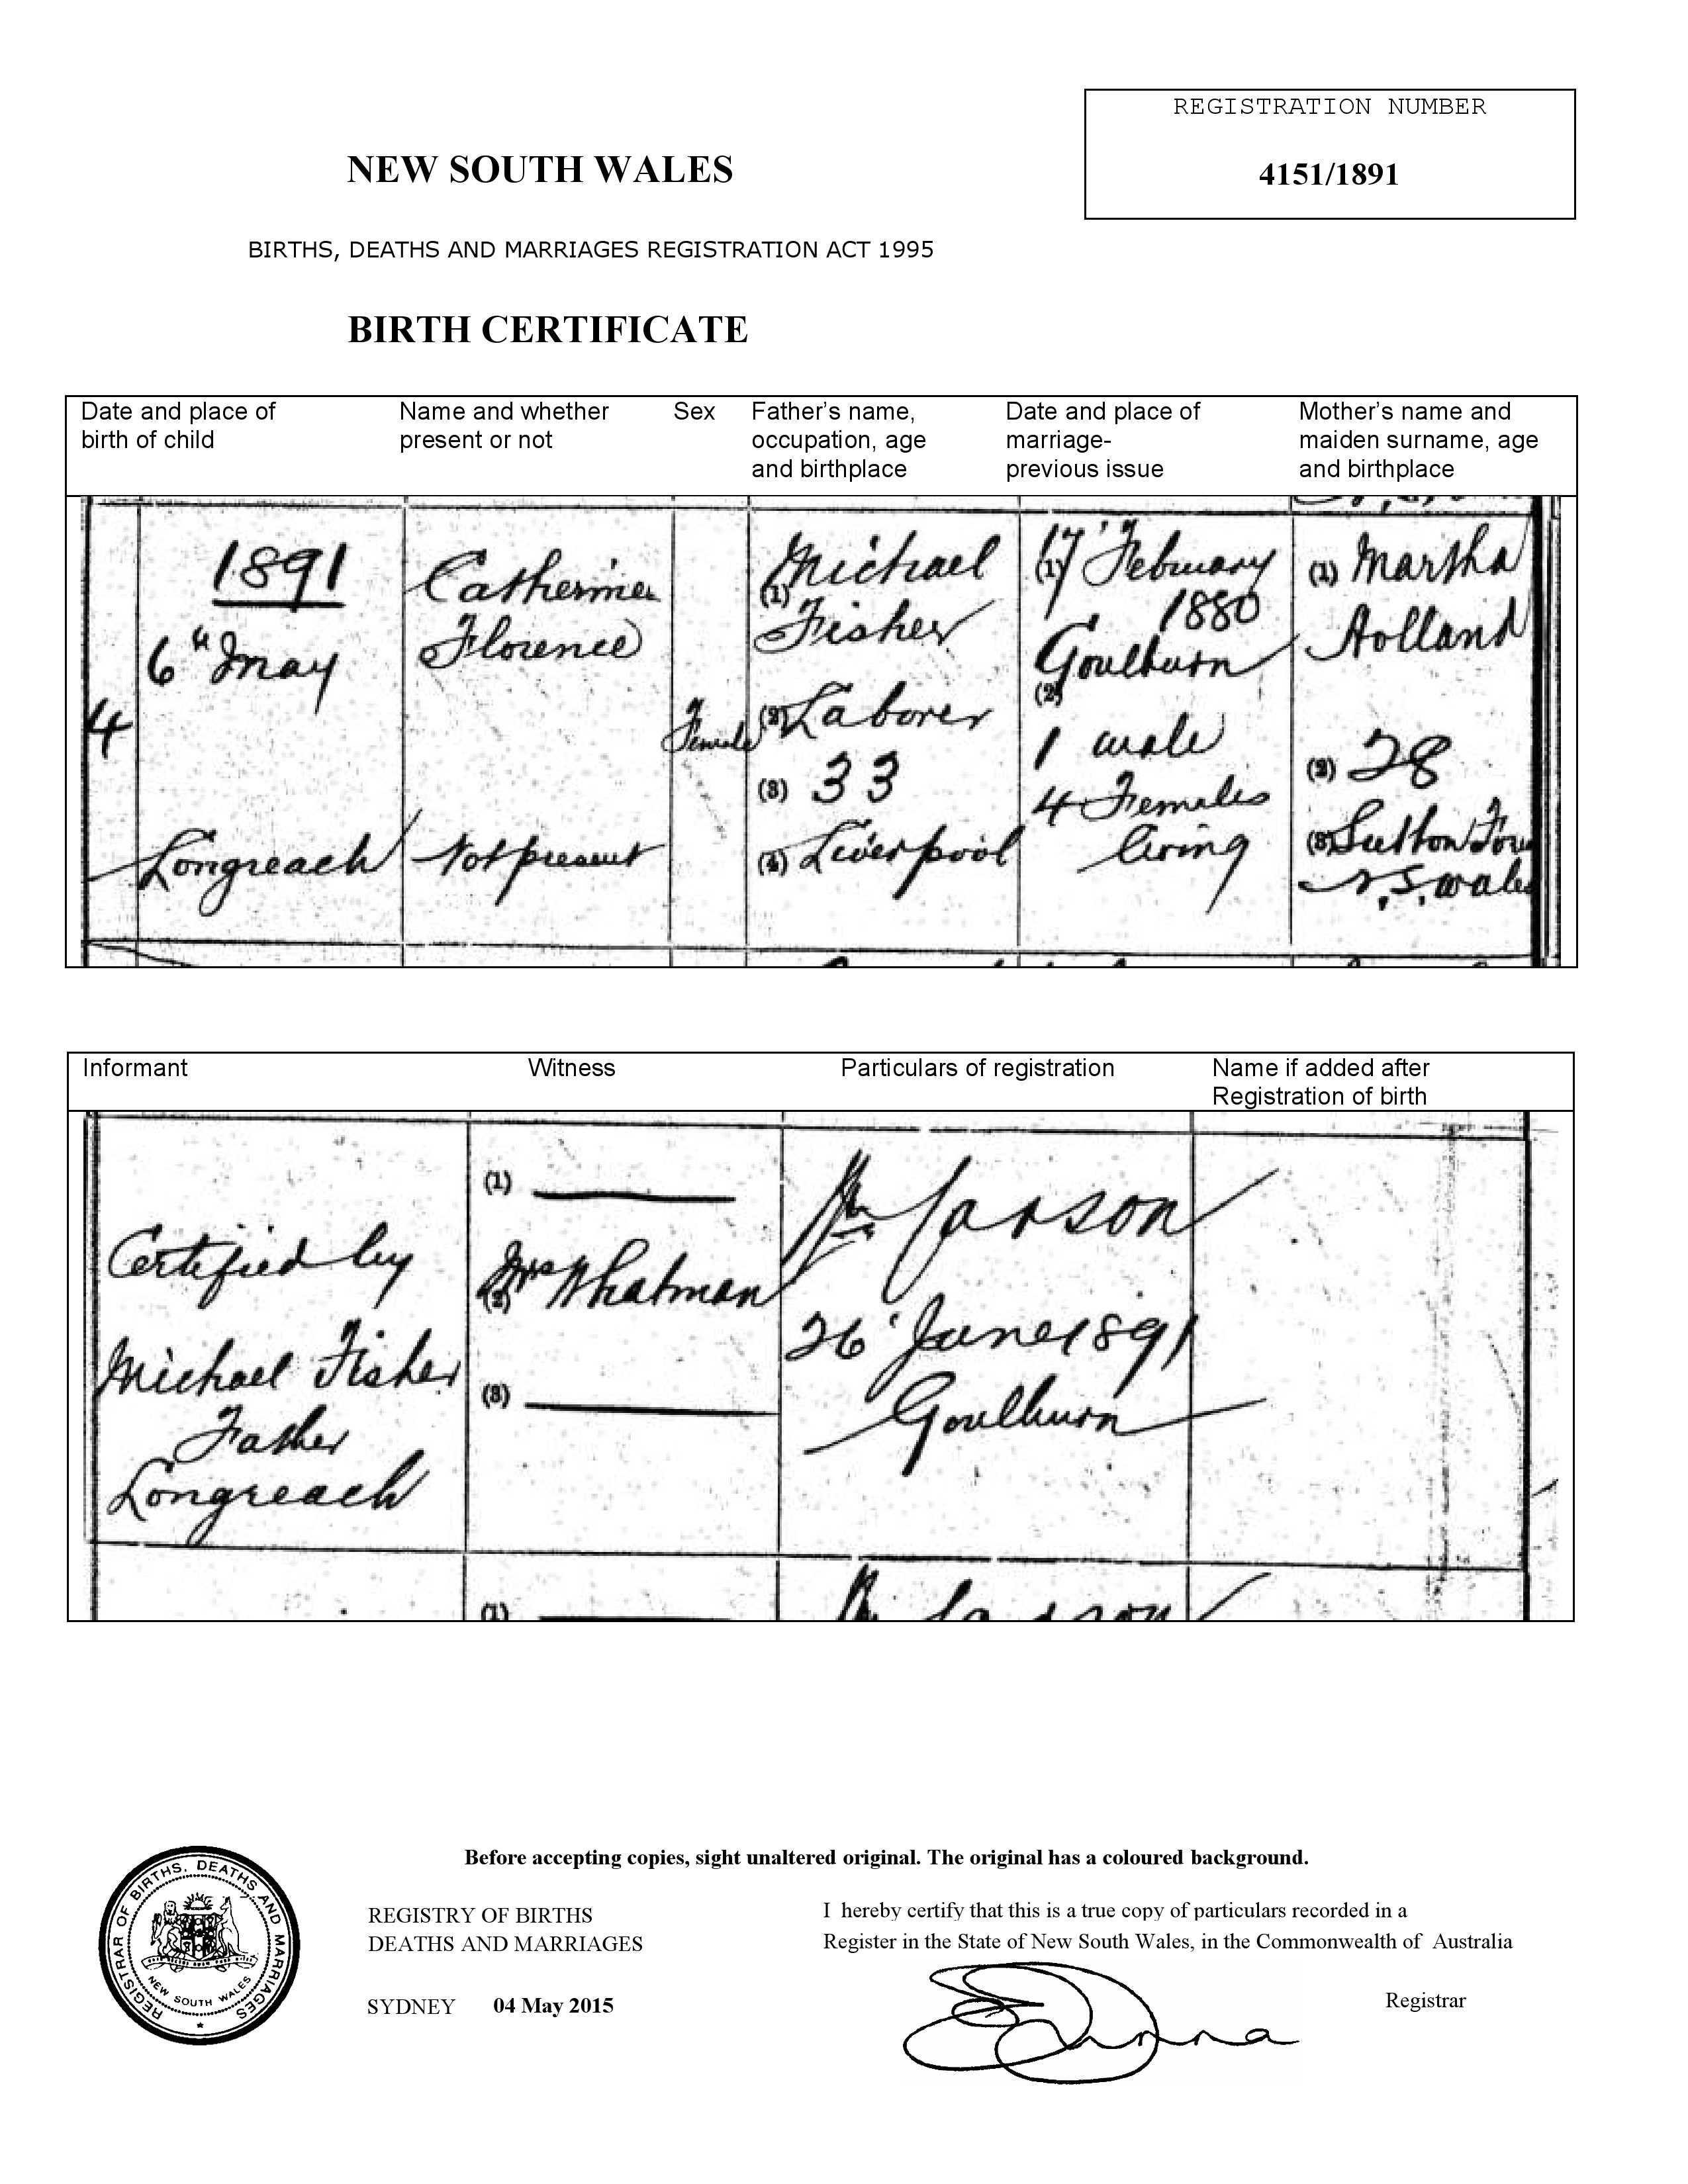 REGISTRATION NUMBER
4151/1891
NEW SOUTH WALES
BIRTHS, DEATHS AND MARRIAGES REGISTRATION ACT 1995
BIRTH CERTIFICATE
Date and place of
birth of child
Name and whether
present or not
Sex
Father's name,
occupation, age
and birthplace
Date and place of
marriage-
previous issue
Mother's name and
maiden surname, age
and birthplace
4
1891
6th May
Longreach
Catherine
Florence
Not present
Female
Michael
(1)
Fisher
(2) Laborer
(3) 33
(4) Liverpool
17' February
(1)
1880
Goulburn
(2)
1 male
4 Females
living
(1) Martha
Holland
(2) 28
(3) Sutton
N.S. Wales
Informant
Witness
Particulars of registration
Name if added after
Registration of birth
Certified by
Michael Fisher
Father
Longreach
(1)
Mrs Whatman
(2)
(3)
26' June 1891
Goulburn
(1)
Before accepting copies, sight unaltered original. The original has a coloured background.
REGISTRAR OF BIRTHS, DEATHS AND MARRIAGES
NEW SOUTH WALES
REGISTRY OF BIRTHS
DEATHS AND MARRIAGES
SYDNEY 04 May 2015
I hereby certify that this is a true copy of particulars recorded in a
Register in the State of New South Wales, in the Commonwealth of Australia
Registrar